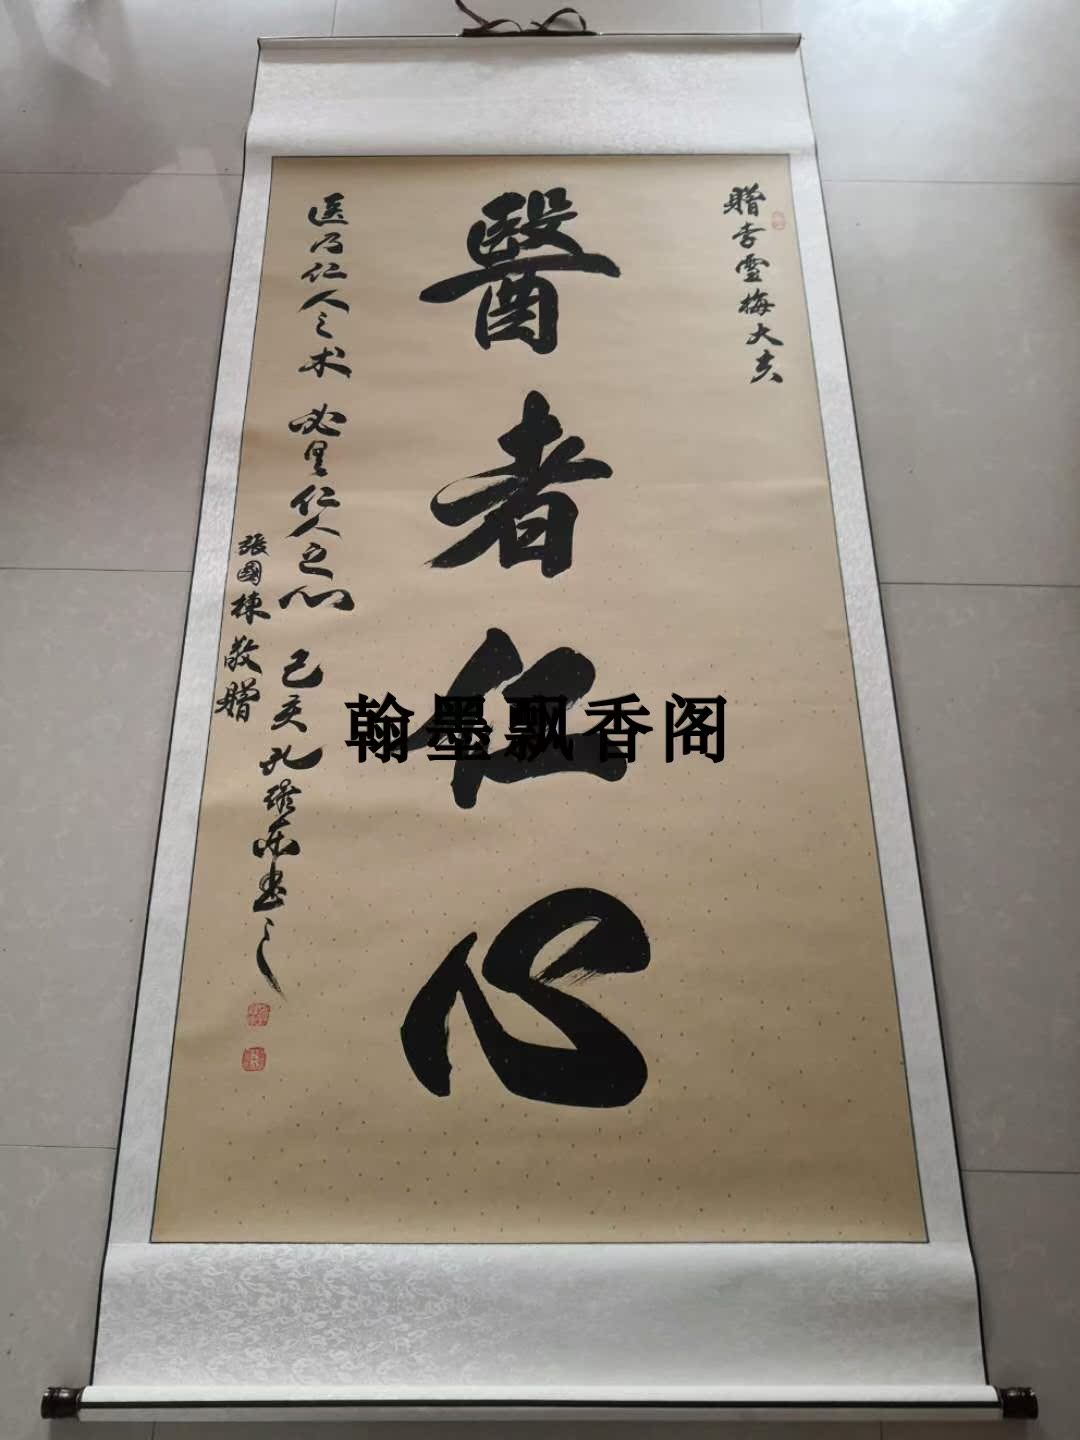 贈李雲梅大夫
醫者仁心
医乃仁人之术 必具仁人之心 己亥 孔瑞东书之
張國棟敬贈
翰墨飘香阁